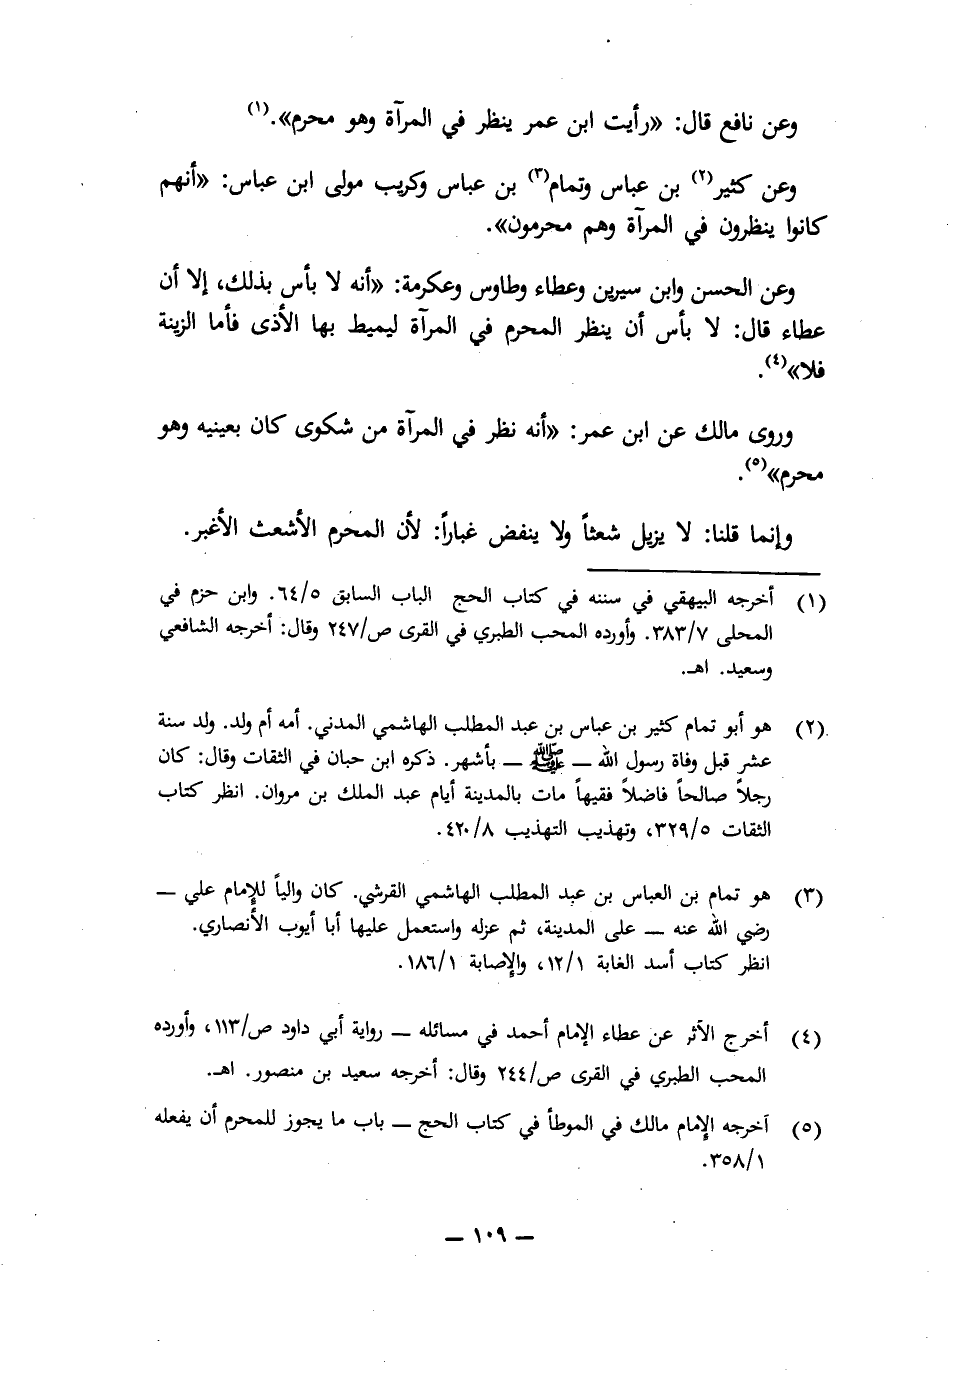 وعن نافع قال: «رأيت ابن عمر ينظر في المرآة وهو محرم».(١)
وعن كثير(٢) بن عباس وتمام(٣) بن عباس وكريب مولى ابن عباس: «أنهم
كانوا ينظرون في المرآة وهم محرمون».
وعن الحسن وابن سيرين وعطاء وطاوس وعكرمة: «أنه لا بأس بذلك، إلا أن
عطاء قال: لا بأس أن ينظر المحرم في المرآة ليميط بها الأذى فأما الزينة
فلا»(٤).
وروى مالك عن ابن عمر: «أنه نظر في المرآة من شكوى كان بعينيه وهو
محرم»(٥).
وإنما قلنا: لا يزيل شعثاً ولا ينفض غباراً: لأن المحرم الأشعث الأغبر.
(١) أخرجه البيهقي في سننه في كتاب الحج الباب السابق ٦٤/٥. وابن حزم في
المحلى ٣٨٣/٧. وأورده المحب الطبري في القرى ص/٢٤٧ وقال: أخرجه الشافعي
وسعيد. اهـ.
(٢) هو أبو تمام كثير بن عباس بن عبد المطلب الهاشمي المدني. أمه أم ولد. ولد سنة
عشر قبل وفاة رسول الله ــ ﷺ ــ بأشهر. ذكره ابن حبان في الثقات وقال: كان
رجلاً صالحاً فاضلاً فقيهاً مات بالمدينة أيام عبد الملك بن مروان. انظر كتاب
الثقات ٣٢٩/٥، وتهذيب التهذيب ٤٢٠/٨.
(٣) هو تمام بن العباس بن عبد المطلب الهاشمي القرشي. كان والياً للإمام علي ــ
رضي الله عنه ــ على المدينة، ثم عزله واستعمل عليها أبا أيوب الأنصاري.
انظر كتاب أسد الغابة ١٢/١، والإصابة ١٨٦/١.
(٤) أخرج الأثر عن عطاء الإمام أحمد في مسائله ــ رواية أبي داود ص/١١٣، وأورده
المحب الطبري في القرى ص/٢٤٤ وقال: أخرجه سعيد بن منصور. اهـ.
(٥) أخرجه الإمام مالك في الموطأ في كتاب الحج ــ باب ما يجوز للمحرم أن يفعله
٣٥٨/١.
ــ ١٠٩ ــ